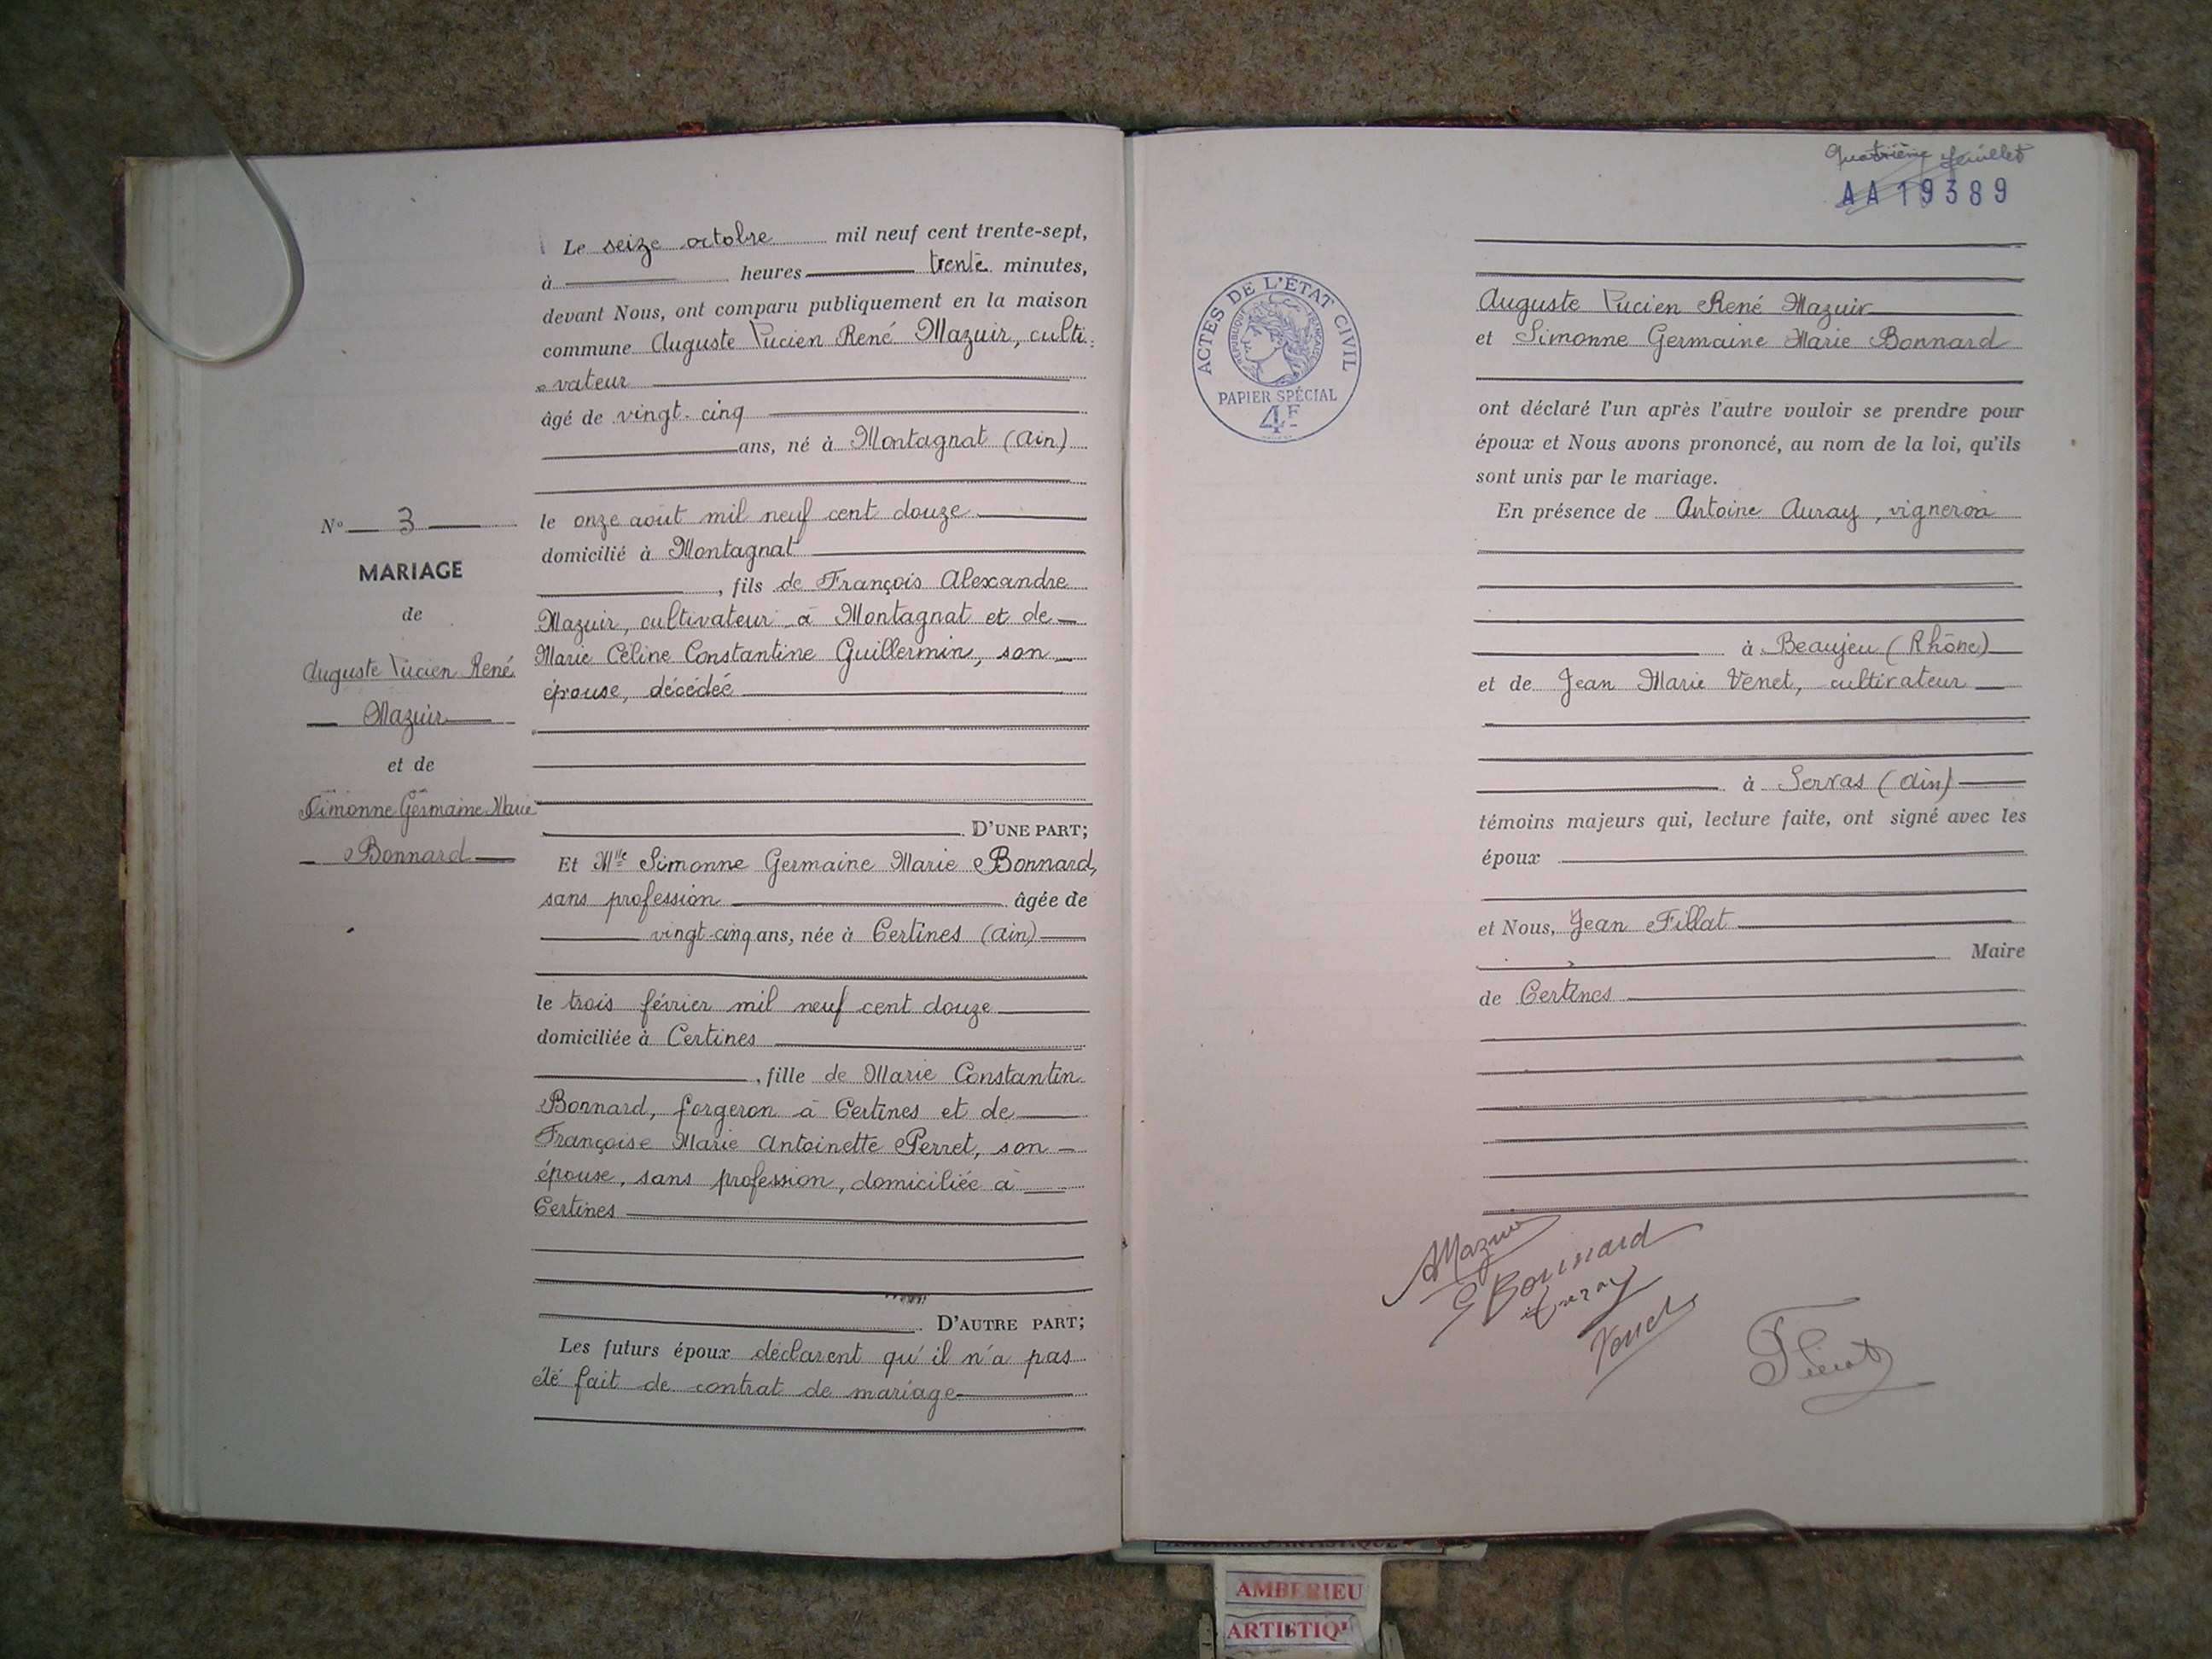 Le seize octobre mil neuf cent trente-sept,
à heures trente minutes,
devant Nous, ont comparu publiquement en la maison
commune Auguste Lucien René Mazuir, culti-
vateur
âgé de vingt-cinq
ans, né à Montagnat (Ain)
le onze août mil neuf cent douze
domicilié à Montagnat
, fils de François Alexandre
Mazuir, cultivateur à Montagnat et de
Marie Céline Constantine Guillermin, son
épouse, décédée
D'UNE PART;
Et Mlle Simonne Germaine Marie Bonnard,
sans profession âgée de
vingt-cinq ans, née à Certines (Ain)
le trois février mil neuf cent douze
domiciliée à Certines
, fille de Marie Constantin
Bonnard, forgeron à Certines et de
Françoise Marie Antoinette Perret, son
épouse, sans profession, domiciliée à
Certines
D'AUTRE PART;
Les futurs époux déclarent qu'il n'a pas
été fait de contrat de mariage
N° 3
MARIAGE
de
Auguste Lucien René
Mazuir
et de
Simonne Germaine Marie
Bonnard
Quatrième feuillet
AA 19389
ACTES DE L'ÉTAT CIVIL
RÉPUBLIQUE FRANÇAISE
PAPIER SPÉCIAL
4F
Auguste Lucien René Mazuir
et Simonne Germaine Marie Bonnard
ont déclaré l'un après l'autre vouloir se prendre pour
époux et Nous avons prononcé, au nom de la loi, qu'ils
sont unis par le mariage.
En présence de Antoine Auray, vigneron
à Beaujeu (Rhône)
et de Jean Marie Venet, cultivateur
à Servas (Ain)
témoins majeurs qui, lecture faite, ont signé avec les
époux
et Nous, Jean Fillat
Maire
de Certines
AMazuir
SBonnard
Auray
Venet
AMBERIEU
ARTISTIQ